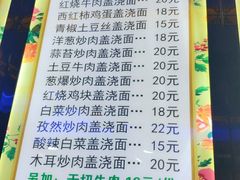 红烧牛肉盖浇面… 20元
西红柿鸡蛋盖浇面… 18元
青椒土豆丝盖浇面… 15元
洋葱炒肉盖浇面… 18元
蒜苔炒肉盖浇面… 20元
土豆牛肉盖浇面… 20元
葱爆炒肉盖浇面… 20元
红烧鸡块盖浇面… 20元
白菜炒肉盖浇面… 18元
孜然炒肉盖浇面… 22元
酸辣白菜盖浇面… 15元
木耳炒肉盖浇面… 20元